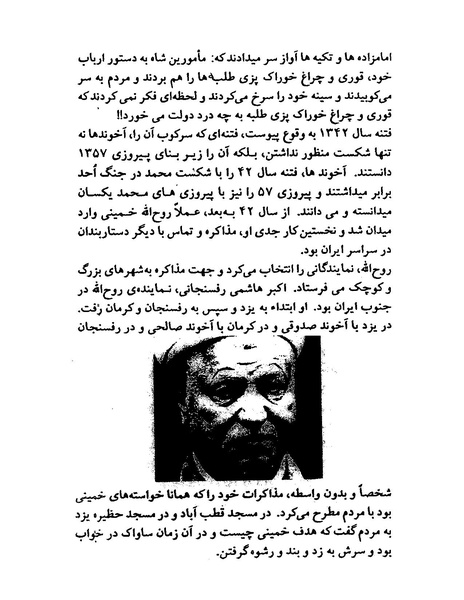 امامزاده ها و تکیه ها آواز سر میدادند که: مأمورین شاه به دستور ارباب
خود، قوری و چراغ خوراک پزی طلبه ها را هم بردند و مردم به سر
می‌کوبیدند و سینه خود را سرخ می‌کردند و لحظه‌ای فکر نمی کردند که
قوری و چراغ خوراک پزی طلبه به چه درد دولت می خورد!!
فتنه سال ۱۳۴۲ به وقوع پیوست، فتنه‌ای که سرکوب آن را، آخوندها نه
تنها شکست منظور نداشتن، بلکه آن را زیر بنای پیروزی ۱۳۵۷
دانستند. آخوند ها، فتنه سال ۴۲ را با شکست محمد در جنگ اُحد
برابر میداشتند و پیروزی ۵۷ را نیز با پیروزی های محمد یکسان
میدانسته و می دانند. از سال ۴۲ به‌بعد، عملاً روح‌الله خمینی وارد
میدان شد و نخستین کار جدی او، مذاکره و تماس با دیگر دستاربندان
در سراسر ایران بود.
روح‌الله، نمایندگانی را انتخاب می‌کرد و جهت مذاکره به‌شهرهای بزرگ
و کوچک می فرستاد. اکبر هاشمی رفسنجانی، نماینده‌ی روح‌الله در
جنوب ایران بود. او ابتداء به یزد و سپس به رفسنجان و کرمان رفت.
در یزد با آخوند صدوقی و در کرمان با آخوند صالحی و در رفسنجان
شخصاً و بدون واسطه، مذاکرات خود را که همانا خواسته‌های خمینی
بود با مردم مطرح می‌کرد. در مسجد قطب آباد و در مسجد حظیره یزد
به مردم گفت که هدف خمینی چیست و در آن زمان ساواک در خواب
بود و سرش به زد و بند و رشوه گرفتن.